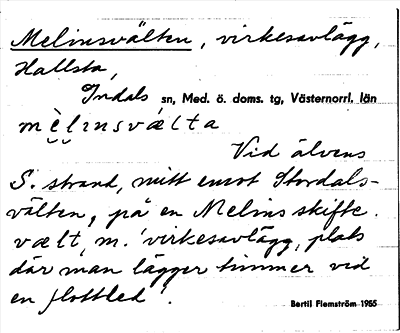 Melinsvälten, virkesavlägg,
Hallsta,
Indals sn, Med. ö. doms. tg, Västernorrl. län
mèlinsvælta
Vid älvens
S. strand, mitt emot Stordals-
välten, på en Melins skifte.
vælt, m. 'virkesavlägg, plats
där man lägger timmer vid
en flottled'.
Bertil Flemström 1965